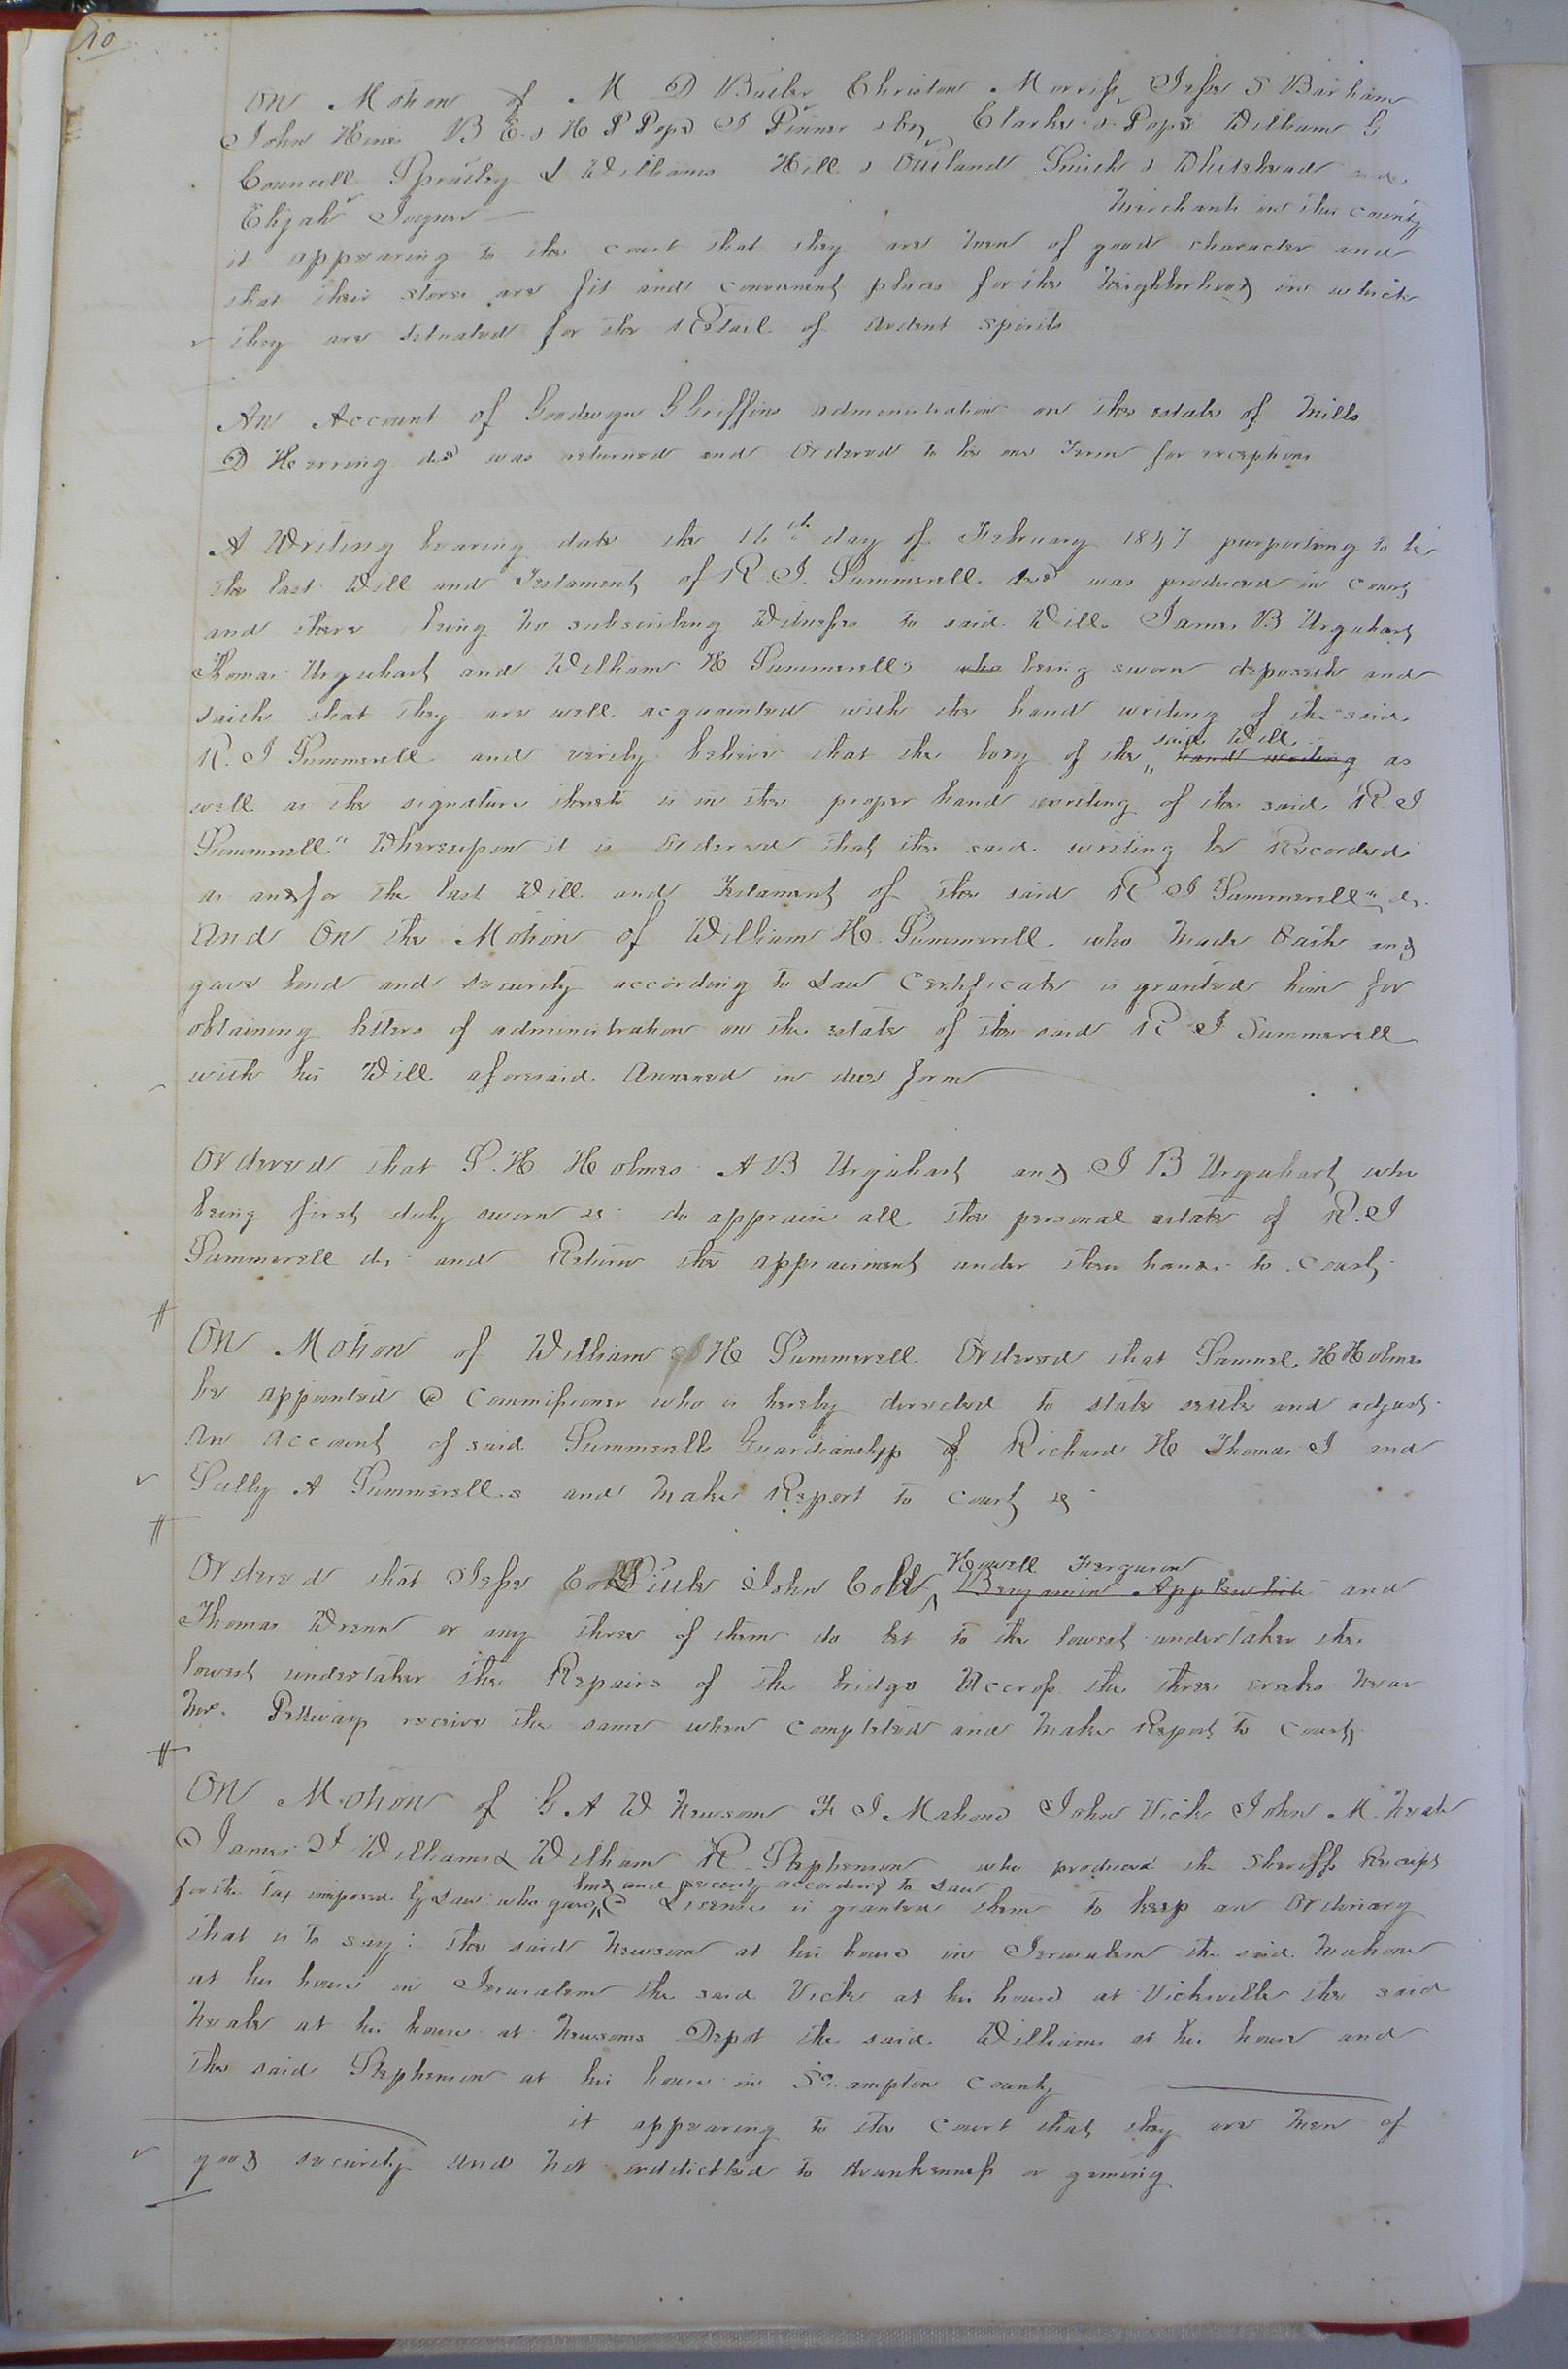 10
On Motion of M D Butler Christon Morriss Jesse S Barham
John Hines B E & H P Pope J Pinner Clarke & Pope William G
Councill Spratley & Williams Hill & Outland Smith & Whitehead and
Elijah Joyner Merchants in this county
it appearing to the court that they are men of good character and
that their stores are fit and convenient places for the Neighborhood in which
they are situated for the Retail of ardent spirits
An Account of Goodwyn G Griffins administration on the estate of Mills
D Herring decd was returned and Ordered to lie one Term for exceptions
A Writing bearing date the 16th day of February 1847 purporting to be
the last Will and Testament of R. J. Summerell decd was produced in court
and there being no subscribing Witness to said Will James B Urquhart
Thomas Urquhart and William H Summerells who being sworn deposeth and
saith that they are well acquainted with the hand writing of the said
R. J Summerell and verily believe that the body of the said Will hand writing as
well as the signature thereto is in the proper hand writing of the said R. J
Summerell" Whereupon it is Ordered that the said writing be Recorded
as and for the last Will and Testament of the said R J Summerell" de.
And On the Motion of William H. Summerell who made Oath and
gave bond and security according to Law Certificate is granted him for
obtaining letters of administration on the estate of the said R J Summerell
with his Will aforesaid Annexed in due form
Ordered that S. H Holmes A B Urquhart and J B Urquhart who
being first duly sworn &c do appraise all the personal estate of R. J
Summerell de. and Return the appraisment under their hands to court
On Motion of William H Summerell Ordered that Samuel H Holmes
be appointed a Commissioner who is hereby directed to state settle and adjust
an account of said Summerells Guardianship of Richard H Thomas J and
Sally A Summerells and make Report to court &c
Ordered that Jesse Little John Cobb Howell Ferguson Benjamin Applewhite and
Thomas Wrenn or any three of them do let to the lowest undertaker the
lowest undertaker the Repairs of the bridge Accross the three creeks near
Mr. Pettway receive the same when completed and make Report to court
On Motion of G A W Newsom F J Mahone John Vick John M. Neale
James J Williams & William R. Stephenson who produced the Sheriffs Receipt
for the Tax imposed by Law who gave bond and security according to Law License is granted them to keep an Ordinary
that is to say: the said Newsom at his house in Jerusalem the said Mahone
at his house in Jerusalem the said Vick at his house at Vicksville the said
Neale at his house at Newsoms Depot the said Williams at his house and
the said Stephenson at his house in So.ampton County
it appearing to the Court that they are men of
good security and not addicted to drunkenness or gaming